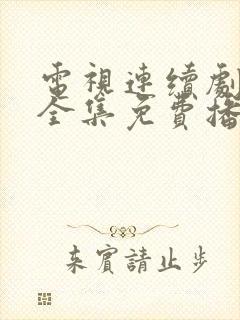 電視連續劇
全集免費播
来賓請止步